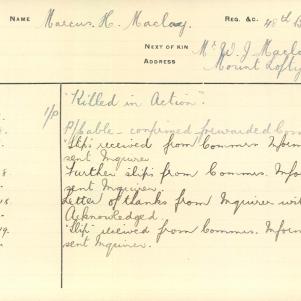 NAME Marcus. H. Maclay. REG. &C. 48th B
NEXT OF KIN Mr W. J. Macla
ADDRESS Mount Lofty
"Killed in Action".
1/p P/Cable - confirmed forwarded Com
"Slip" received from Commrs. Inform
sent Inquirer
8 Further slips from Commrs. Info
sent Inquirer.
Letter of thanks from Inquirer wit
Acknowledged.
19. "Slip" received from Commrs. Inform
sent Inquirer.